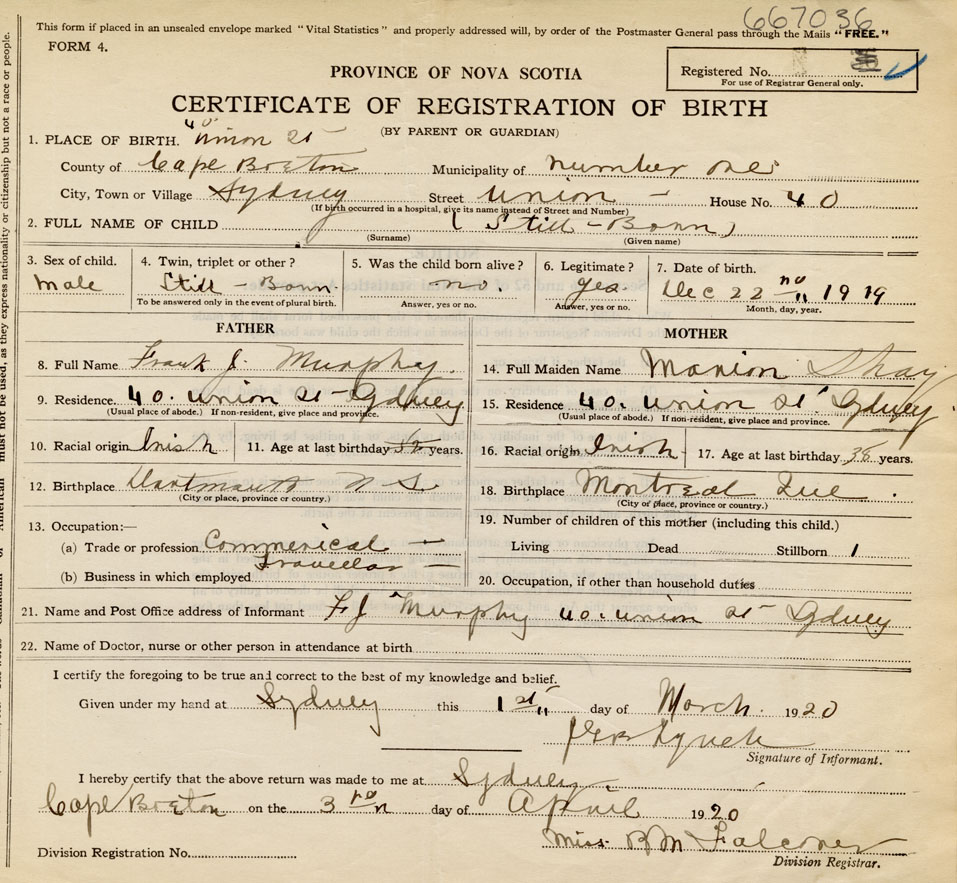 667036
This form if placed in an unsealed envelope marked "Vital Statistics" and properly addressed will, by order of the Postmaster General pass through the Mails "FREE."
FORM 4.
PROVINCE OF NOVA SCOTIA
Registered No.
For use of Registrar General only.
CERTIFICATE OF REGISTRATION OF BIRTH
(BY PARENT OR GUARDIAN)
1. PLACE OF BIRTH. 40 Union St
County of Cape Breton Municipality of number one
City, Town or Village Sydney Street Union House No. 40
(If birth occurred in a hospital, give its name instead of Street and Number)
2. FULL NAME OF CHILD (Still-Born)
(Surname) (Given name)
3. Sex of child. 4. Twin, triplet or other? 5. Was the child born alive? 6. Legitimate? 7. Date of birth.
Male Still-Born no. yes Dec 22 nd 1919
To be answered only in the event of plural birth. Answer, yes or no. Answer, yes or no. Month, day, year.
FATHER MOTHER
8. Full Name Frank J. Murphy. 14. Full Maiden Name Marion Shay
9. Residence 40. Union St Sydney 15. Residence 40. Union St Sydney
(Usual place of abode.) If non-resident, give place and province. (Usual place of abode.) If non-resident, give place and province.
10. Racial origin Irish 11. Age at last birthday years. 16. Racial origin Irish 17. Age at last birthday 38 years.
12. Birthplace Dartmouth N S. 18. Birthplace Montreal Que.
(City or place, province or country.) (City or place, province or country.)
13. Occupation:— 19. Number of children of this mother (including this child.)
(a) Trade or profession Commerical Travellar Living Dead Stillborn 1
(b) Business in which employed 20. Occupation, if other than household duties
21. Name and Post Office address of Informant F J Murphy 40. Union St Sydney
22. Name of Doctor, nurse or other person in attendance at birth
I certify the foregoing to be true and correct to the best of my knowledge and belief.
Given under my hand at Sydney this 1st day of March. 1920
Lynch
Signature of Informant.
I hereby certify that the above return was made to me at Sydney
Cape Breton on the 3 rd day of April 1920
Miss. B M Falconer
Division Registration No.
Division Registrar.